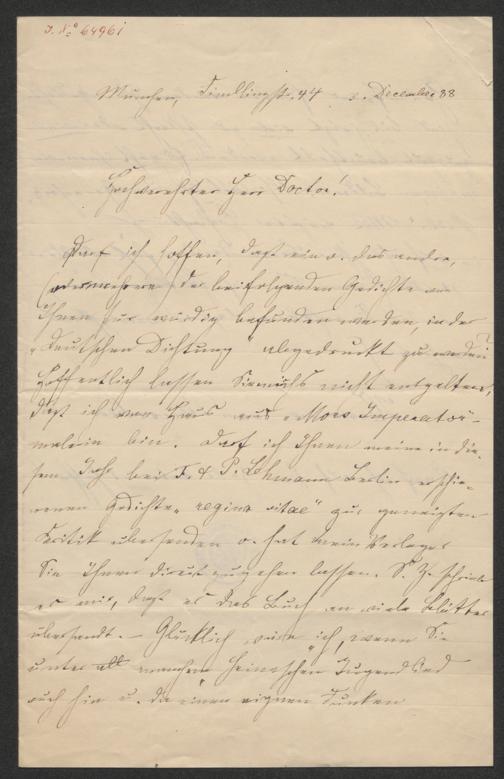 J. No 64961
München, Findlingstr. 44 5. December 88
Hochverehrter Herr Doctor!
Darf ich hoffen, daß ein o. das andre,
(oder mehrere) der beifolgenden Gedichte von
Ihnen für würdig befunden werden, in der
"Deutschen Dichtung" abgedruckt zu werden?
Hoffentlich lassen Sie michs nicht entgelten,
daß ich von Haus aus "Mors Imperator"-
malerin bin. Darf ich Ihnen meine in die-
sem Jahr bei F. & P. Lehmann Berlin erschie-
nenen Gedichte "regina vitae" zur geneigten
Kritik übersenden o. hat mein Verleger
Sie Ihnen direct zugehen lassen. S. Z. schrieb
er mir, daß er das Buch an viele Blätter
übersandt. – Glücklich wäre ich, wenn Sie
unter all manchem Heineschen Jugendlied
auch hin u. da einen eignen Funken